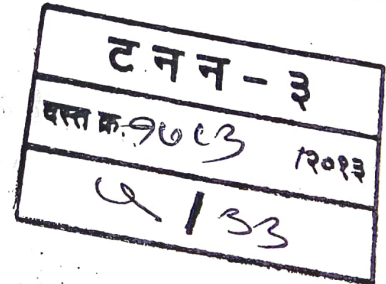 ट न न - ३
दस्त क्र. १७८३ /२०१३
५ / ३३